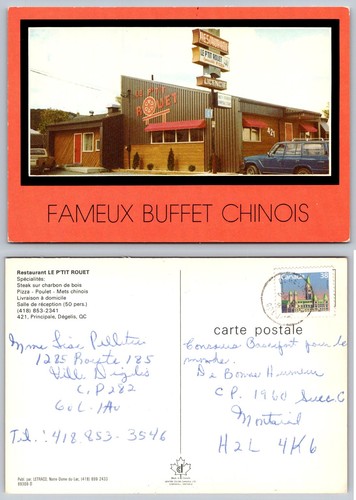 RESTAURANT
LE P'TIT ROUET
LICENCIÉ
ROUET
421
FAMEUX BUFFET CHINOIS
Restaurant LE P'TIT ROUET
Spécialités:
Steak sur charbon de bois
Pizza - Poulet - Mets chinois
Livraison à domicile
Salle de réception (50 pers.)
(418) 853-2341
421, Principale, Dégelis, QC
carte postale
Mme Lise Pelletier
1285 Route 185
Ville Dégelis
C.P 282
G0L-1H0
Tél.: 418.853-3546
Concours
De Bonne Humeur
CP. 1960 Succ. C
Montréal
H2L 4K6
Post. par. LETRACO, Notre Dame du Lac, (418) 899 2433